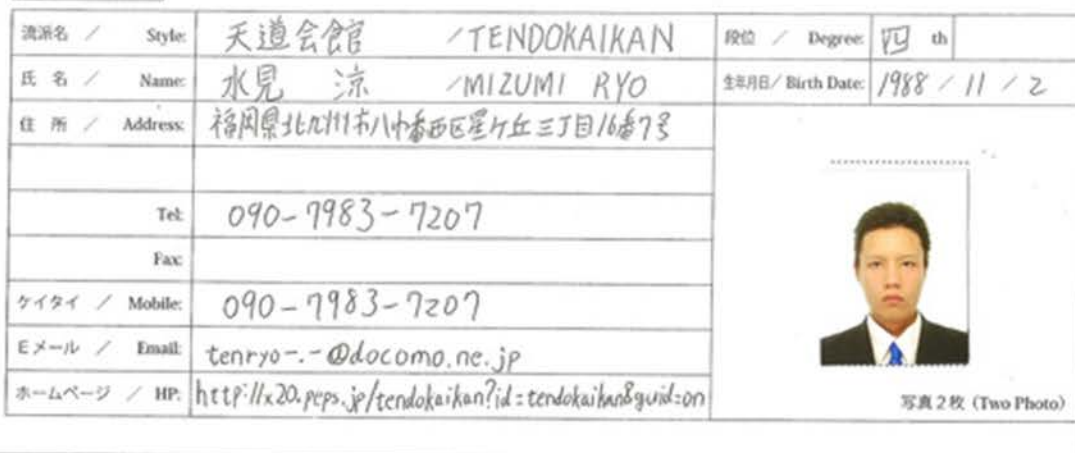 流派名 / Style: 天道会館 /TENDOKAIKAN 段位 / Degree: 四 th
氏 名 / Name: 水見 涼 /MIZUMI RYO 生年月日/ Birth Date: 1988 / 11 / 2
住 所 / Address: 福岡県北九州市八幡西区星ケ丘三丁目16番7号
Tel: 090-7983-7207
Fax:
ケイタイ / Mobile: 090-7983-7207
Eメール / Email: tenryo-.-@docomo.ne.jp
ホームページ / HP: http://x20.peps.jp/tendokaikan?id=tendokaikan&guid=on
写真2枚 (Two Photo)